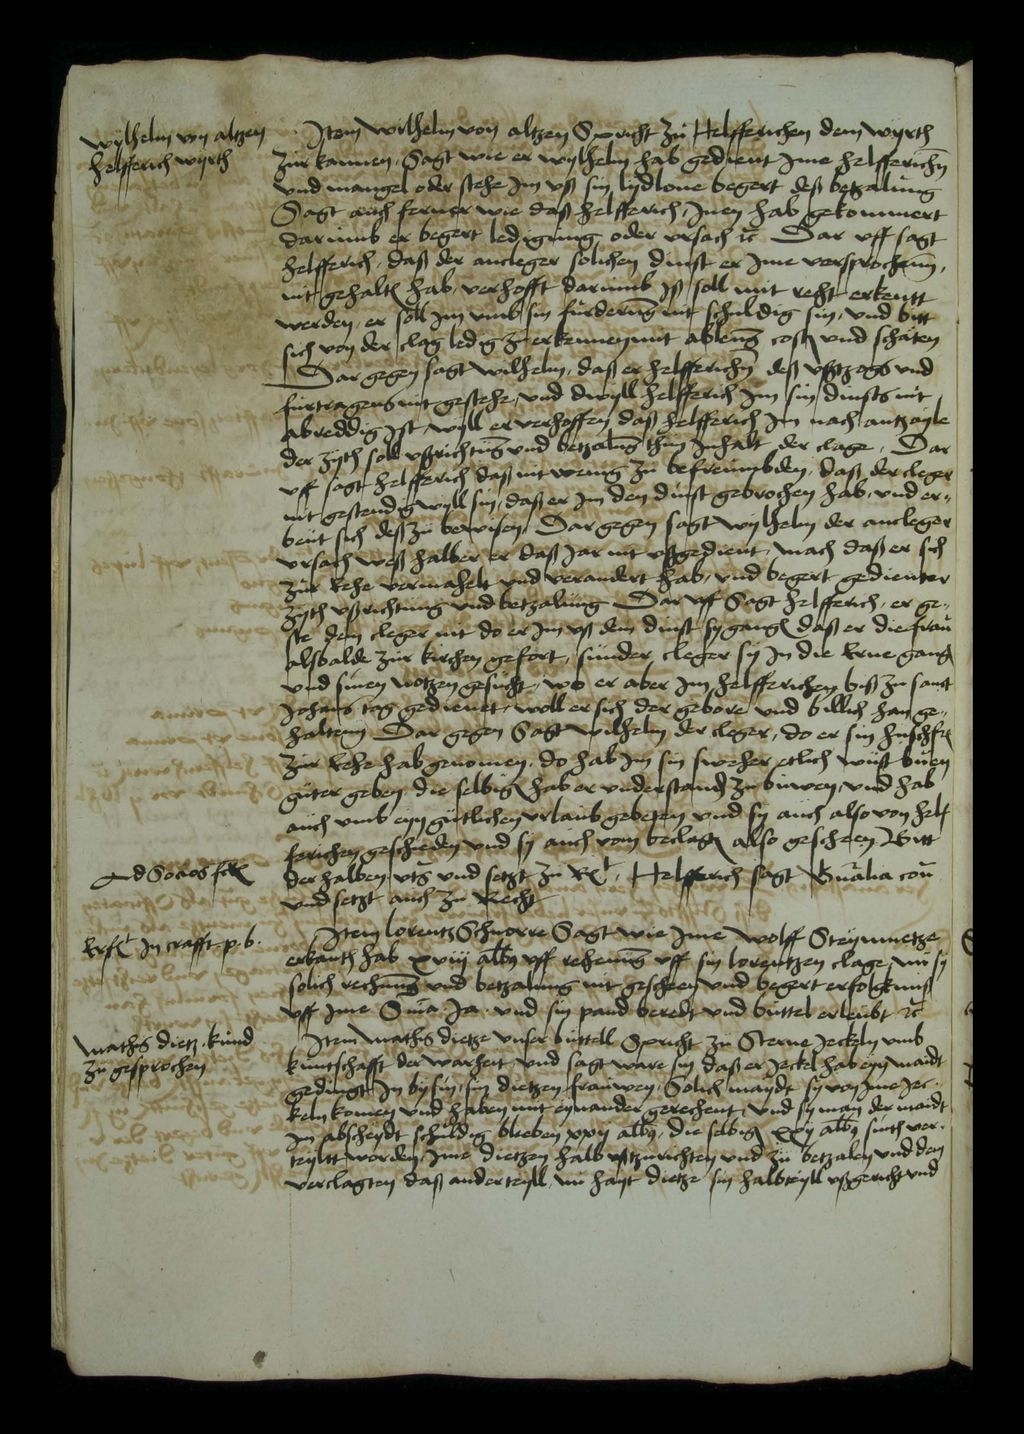 Wylhelm von altzen
helfferich wyrth
Item Wilhelm von altzen Spricht zu Helfferichen dem wyrth
zur kannen, Sagt wie er wylhelm hab gedient Ime helfferichen
vnd mangel oder stehe Im vß sin lydlone begert deß betzalung
Sagt auch ferner wie daß helfferich Inen hab gekommert
darumb er begert ledigung oder vrsach ꝛc Dar vff sagt
helfferich, daß der ancleger solichen dinst er Ime versprochenn,
nit gehalten hab, verhofft darumb Iß soll mit recht erkentt
werden, er soll Im vmb sin furderung nit schuldig sin, vnd bitt
sich von der clag ledig zu erkennen mit ableng costen vnd schaten
Dar gegen sagt Wilhelm, daß er helfferichen deß vffzogs vnd
furtragens nit gestehe, vnd dwyll helfferich Im sin dinsts nit
abreddig Ist wyll er verhoffen daß helfferich Im nach antzayle
der zyth soll vßrichtung vnd betzalung thun Inhalt der clage, Dar
vff sagt helfferich daß nit wenig zu befreumbden, daß der cleger
nit gestendig wyll sin, daß er Im den dinst gebrochen hab, vnd er-
beut sich deß zu bewisen Dar gegen sagt wylhelm der ancleger
vrsach weß halber er daß Jar nit vßgedient, mach daß er sich
zur Eehe vermahelt vnd verandert hab, vnd begert gedienter
zyth vßrichtung vnd betzalung Dar vff Sagt helfferich, er ge-
ste dem cleger nit do er Im vß dem dinst sy gangen daß er die frau
alsbalde zur kirchen gefort, sunder cleger sy In die Erne gangen
vnd sinen notzen gesucht, wo er aber Im helfferichen biß zu sanct
Johans tag gedienet, woll er sich der gebore vnd billich han ge-
haltenn Dar gegen Sagt Wilhelm der cleger, do er sin
zur Eehe hab genomen, do hab Im sin sweher etlich wust buen
guter geben, die selbigen hab er vnderstanden zu buwen, vnd hab
auch vmb eyn gutlichen vrlaub gebetten vnd sy auch also von helf
ferichen gescheden vnd sy auch vom beclagten also gescheen Bitt
Ad Socios
der halben vts vnd setzt zu Recht, Helfferich sagt
vnd setzt auch zu Recht
Erfolt In crafft p. b.
Item lorentz Schnorre Sagt wie Ime Wolff Steynmetze
erkanth hab xviij albus vff rechenung vff sin lorentzen clage, nu sy
solich rechnung vnd betzalung nit gescheen vnd begert erfolgknuß
vff Ime Sniam Ja. vnd sin pand beredt vnd buttel erleubt ꝛc
Mathis dietz kund
zu gesprochen
Item Mathis dietze vnser buttell Spricht zu Sterne Jeckeln vmb
kuntschafft der warheit vnd sagt ware sin daß er Jeckel hab eyn maidt
gedingt In bysin sin dietzen frauwen, Solich maydt sy von Ime Jec-
keln komen vnd haben mit eynander gerechent vnd sy man der maidt
Im abscheydt schuldig blieben xxij albus, die selbigen xxij albus sinth ver-
teyltt worden Ime dietzen halb vßtzurichten vnd zu betzalen vnd dem
verclagten daß ander teyll, nu hayt dietze sin halbteyll vßgericht vnd